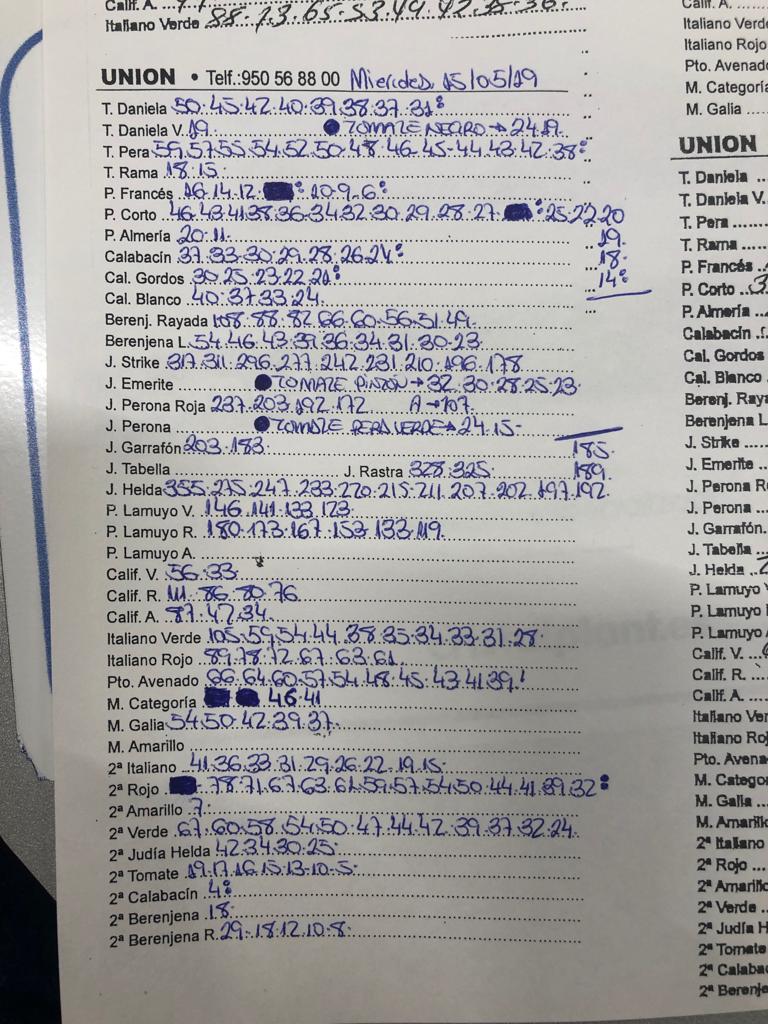 Calif. A.
Italiano Verde 88.73.65.53.49.42.35.36.
UNION • Telf.:950 56 88 00 Miercoles, 15/05/19
T. Daniela 50.45.42.40.39.38.37.31:
T. Daniela V. 19. ● TOMATE NEGRO → 24.19.
T. Pera 59.57.55.54.52.50.48.46.45.44.43.42.38:
T. Rama 18.15.
P. Francés 16.14.12. : 10.9.6:
P. Corto 46.43.41.38.36.34.32.30.29.28.27. : 25.22.20
P. Almería 20.11. 19.
Calabacín 37.33.30.29.28.26.24: 18.
Cal. Gordos 30.25.23.22.21: 14:
Cal. Blanco 40.37.33.24.
Berenj. Rayada 108.88.82.66.60.56.51.49.
Berenjena L. 54.46.43.39.36.34.31.30.23.
J. Strike 317.311.296.277.242.231.210.196.178
J. Emerite ● TOMATE PINTON → 32.30.28.25.23.
J. Perona Roja 237.203.192.172 A → 107.
J. Perona ● TOMATE PERA VERDE → 24.15.
J. Garrafón 203.183. 185.
J. Tabella J. Rastra 328.325. 189.
J. Helda 355.275.247.233.220.215.211.207.202.197.192.
P. Lamuyo V. 146.141.133.123.
P. Lamuyo R. 180.173.167.153.133.119.
P. Lamuyo A.
Calif. V. 56.33.
Calif. R. 111.86.80.76
Calif. A. 87.47.34.
Italiano Verde 105.59.54.44.38.35.34.33.31.28.
Italiano Rojo 89.78.72.67.63.61.
Pto. Avenado 66.64.60.57.54.48.45.43.41.39.
M. Categoría 46.41
M. Galia 54.50.42.39.37.
M. Amarillo
2ª Italiano 41.36.33.31.29.26.22.19.15.
2ª Rojo 78.71.67.63.61.59.57.54.50.44.41.39.32:
2ª Amarillo 7.
2ª Verde 67.60.58.54.50.47.44.42.39.37.32.24.
2ª Judía Helda 42.34.30.25.
2ª Tomate 19.17.16.15.13.10.5.
2ª Calabacín 4:
2ª Berenjena 18.
2ª Berenjena R. 29.18.12.10.8.
Calif. A.
Italiano Verde
Italiano Rojo
Pto. Avenado
M. Categoría
M. Galia
UNION
T. Daniela
T. Daniela V.
T. Pera
T. Rama
P. Francés
P. Corto
P. Almería
Calabacín
Cal. Gordos
Cal. Blanco
Berenj. Raya
Berenjena L
J. Strike
J. Emerite
J. Perona R
J. Perona
J. Garrafón.
J. Tabella
J. Helda
P. Lamuyo
P. Lamuyo
P. Lamuyo
Calif. V.
Calif. R.
Calif. A.
Italiano Ver
Italiano Roj
Pto. Avena
M. Catego
M. Galia
M. Amarill
2ª Italiano
2ª Rojo
2ª Amarill
2ª Verde
2ª Judía H
2ª Tomate
2ª Calaba
2ª Berenje